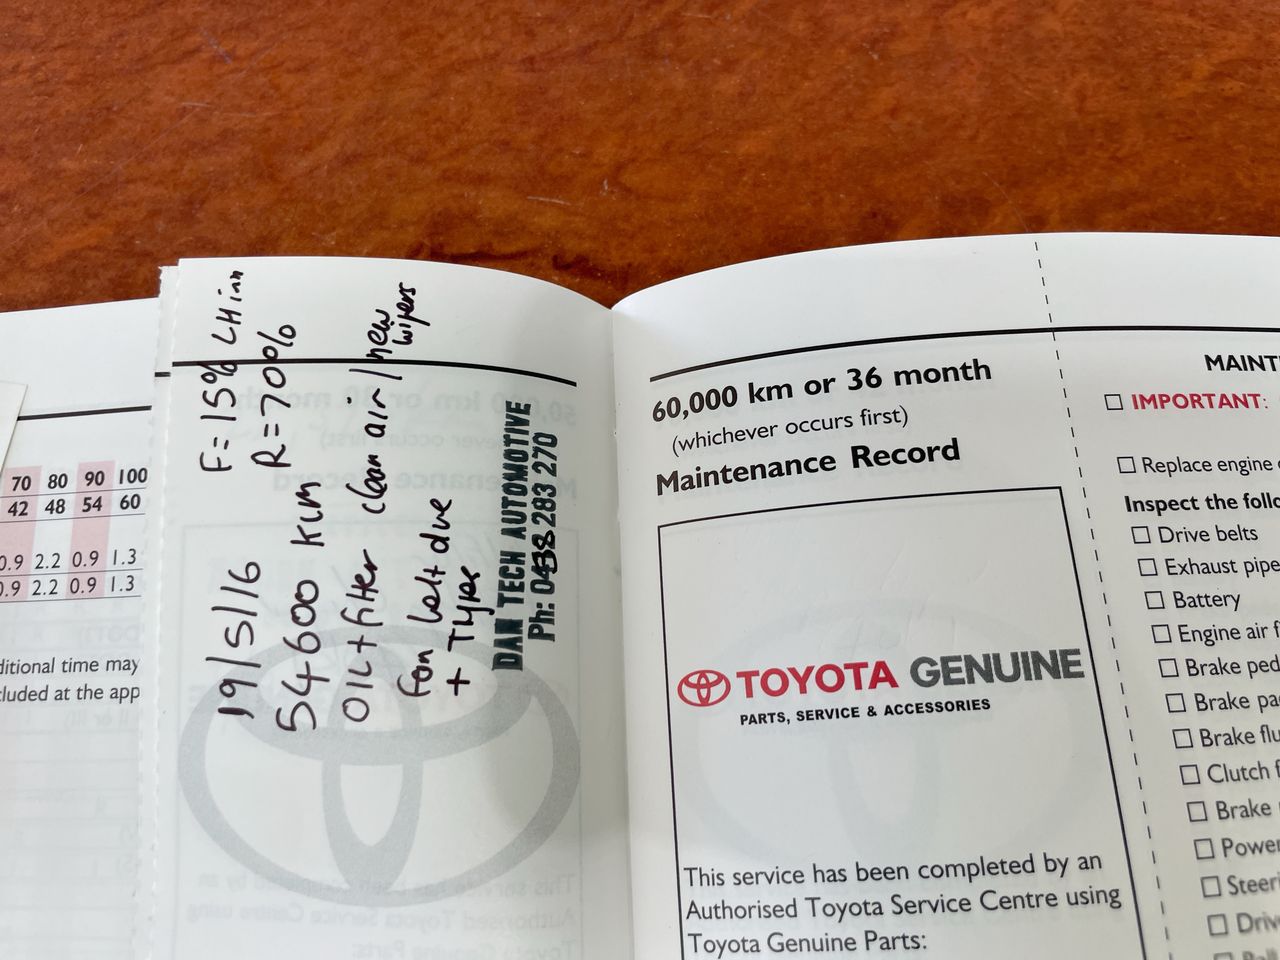 70 80 90 100
42 48 54 60
0.9 2.2 0.9 1.3
0.9 2.2 0.9 1.3
ditional time may
cluded at the app
19/5/16 F=15% LH inn
54600 KM R=70%
OIL + filter clean air / new wipers
fan belt due
+ Tyres
DAN TECH AUTOMOTIVE
Ph: 0438 283 270
60,000 km or 36 month
(whichever occurs first)
Maintenance Record
TOYOTA GENUINE
PARTS, SERVICE & ACCESSORIES
This service has been completed by an
Authorised Toyota Service Centre using
Toyota Genuine Parts:
MAINT
IMPORTANT:
Replace engine
Inspect the follo
Drive belts
Exhaust pipe
Battery
Engine air f
Brake ped
Brake pa
Brake flu
Clutch f
Brake
Power
Steeri
Driv